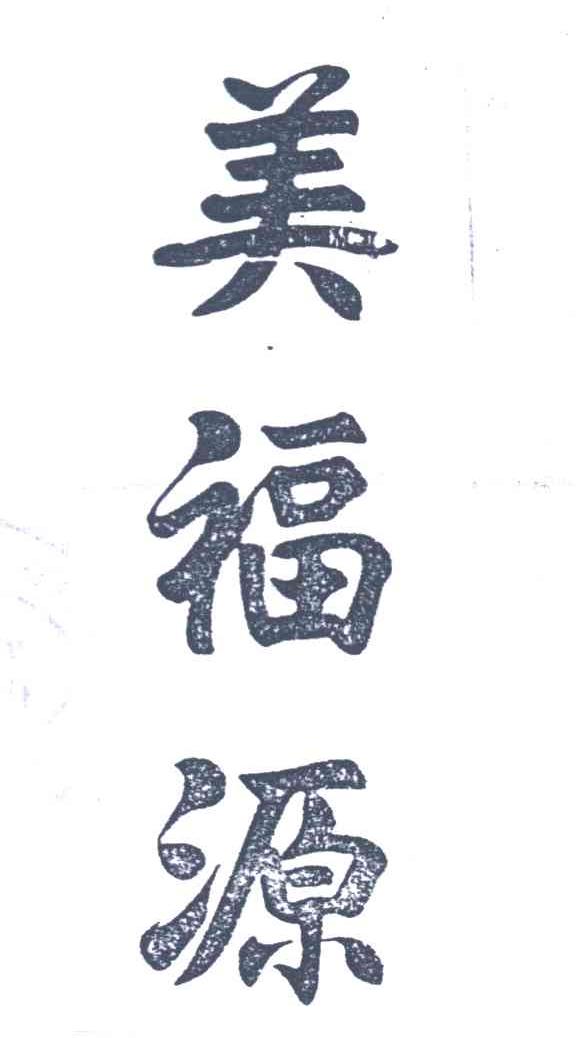 美福源